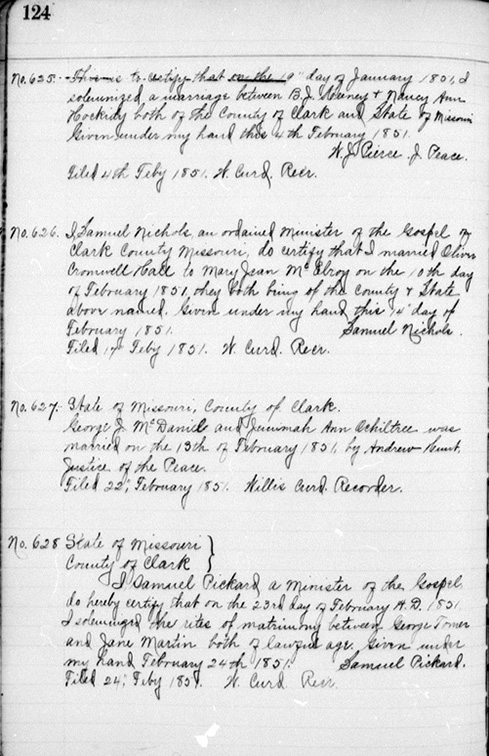 124
No. 625. This is to certify that on the 19" day of January 1851, I
solemnized a marriage between B. J. & Nancy Ann
both of the County of Clark and State of Missouri
Given under my hand this 4th February 1851.
W. J. Pierce. J. Peace.
Filed 4th Feby 1851. W. Curd. Recr.
No. 626. I Samuel Nichols, an ordained Minister of the Gospel of
Clark County Missouri, do certify that I married Oliver
Cromwell Hall to Mary Jean McElroy on the 10th day
of February 1851, they both being of the County & State
above named. Given under my hand this 14" day of
February 1851. Samuel Nichols.
Filed 17" Feby 1851. W. Curd. Recr.
No. 627. State of Missouri, County of Clark.
George J. McDaniel and Ann Ochiltree was
married on the 13th of February 1851, by Andrew
Justice of the Peace.
Filed 22; February 1851. Willis Curd. Recorder.
No. 628 State of Missouri }
County of Clark }
I Samuel Pickard, a Minister of the Gospel
do hereby certify that on the 23rd day of February A.D. 1851.
I solemnized the rites of matrimony between George
and Jane Martin both of lawful age. Given under
my hand February 24th 1851. Samuel Pickard.
Filed 24; Feby 1851. W. Curd Recr.